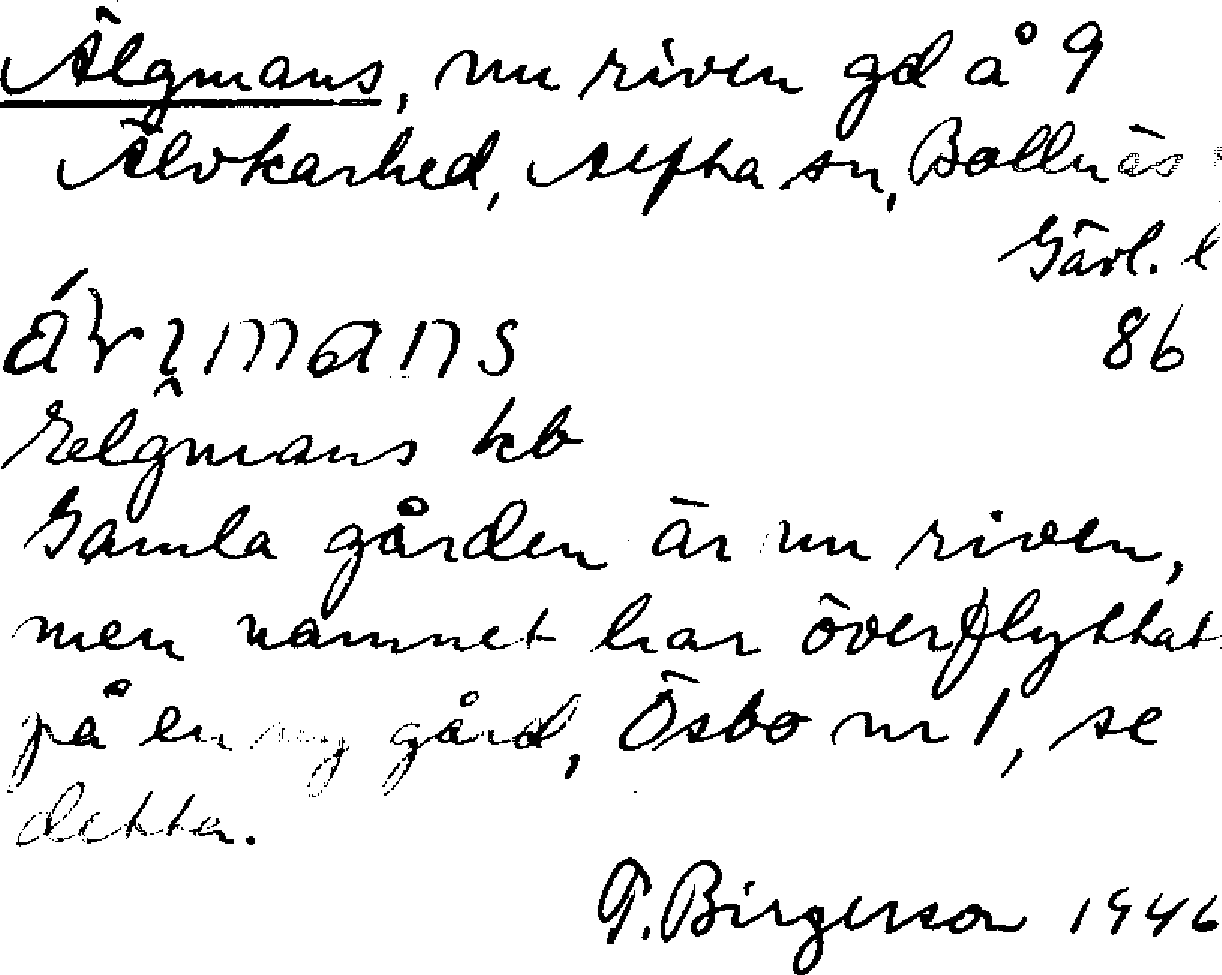 Älgmans, nu riven gd å 9
Älvkarhed, Alfta sn, Bollnäs
Gävl. l
86
Elgmans kb
Gamla gården är nu riven,
men namnet har överflyttat
på en ny gård, Ösbo nr 1, se
detta.
T. Birgerson 1946